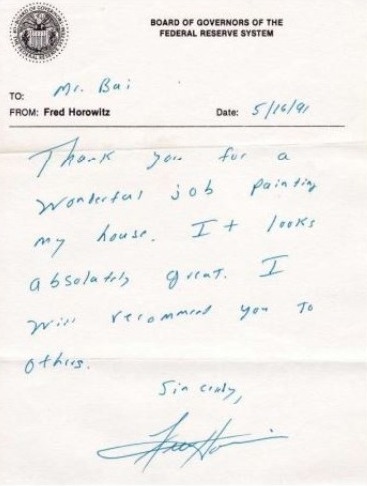 BOARD OF GOVERNORS OF THE
FEDERAL RESERVE SYSTEM
TO: Mr. Bai
FROM: Fred Horowitz Date: 5/16/91
Thank you for a
wonderful job painting
my house. It looks
absolutely great. I
will recommend you to
others.
Sincerely,